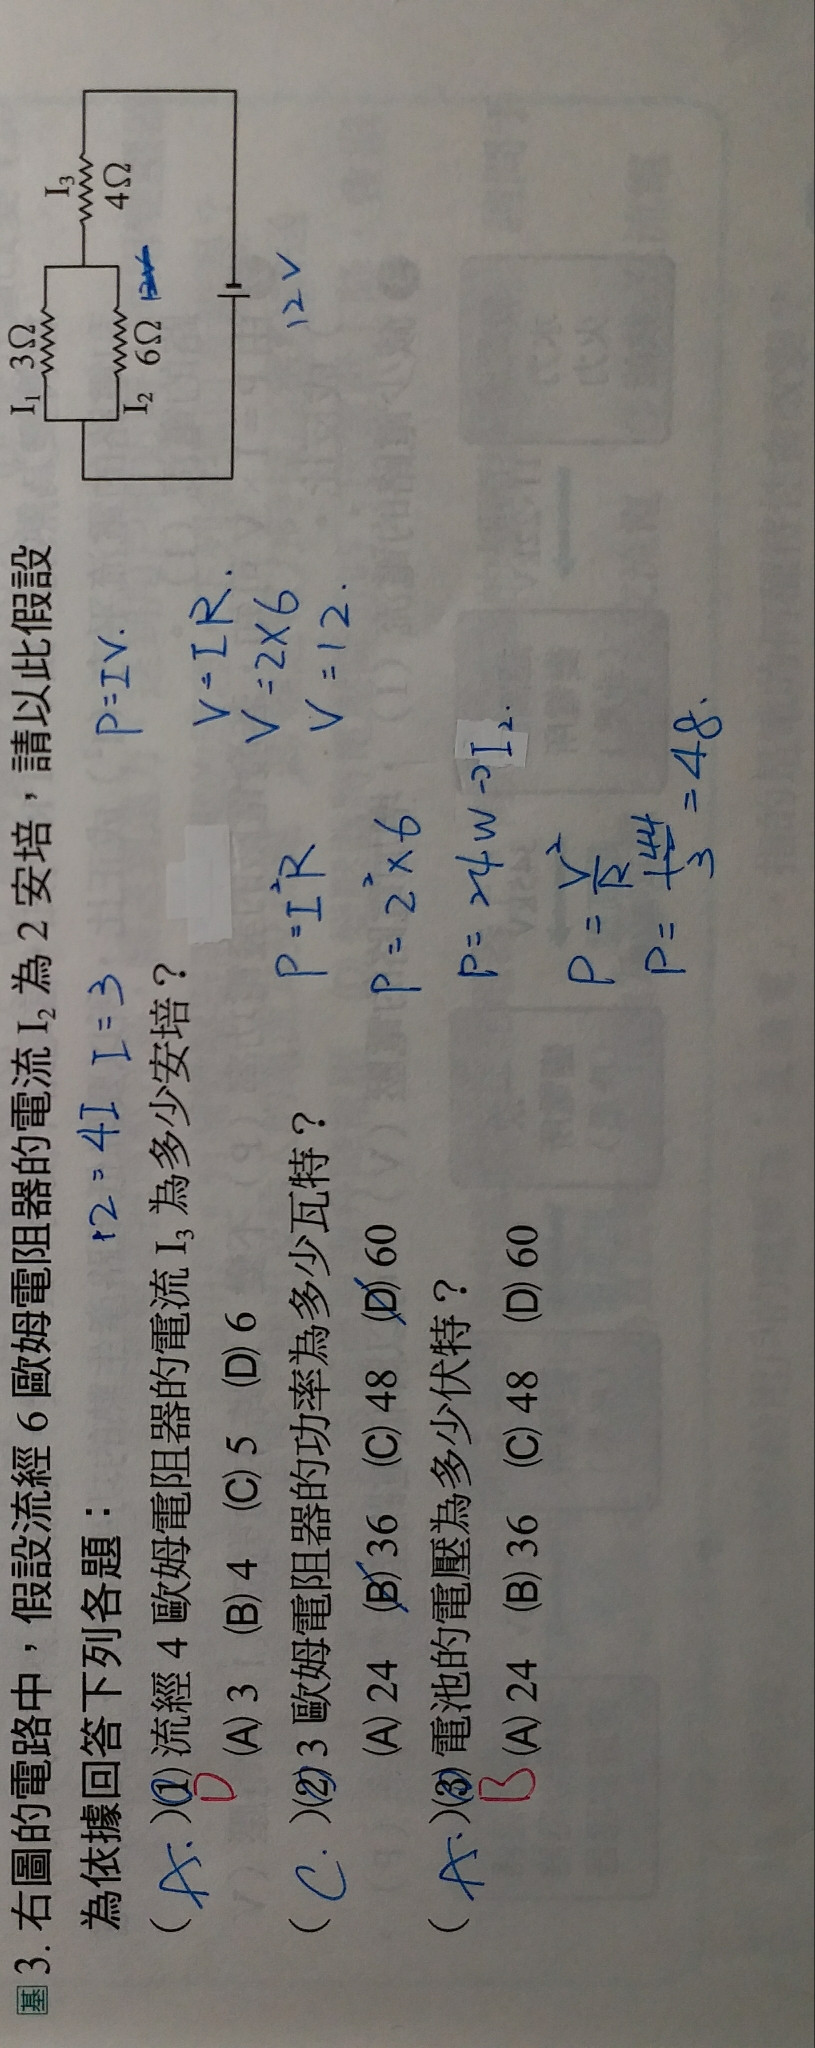 基 3. 右圖的電路中，假設流經 6 歐姆電阻器的電流 I₂ 為 2 安培，請以此假設
為依據回答下列各題：
12=4I I=3
P=IV.
( A. )(1) 流經 4 歐姆電阻器的電流 I₃ 為多少安培？
D
(A) 3 (B) 4 (C) 5 (D) 6
V=IR.
V=2×6
V=12.
( C. )(2) 3 歐姆電阻器的功率為多少瓦特？
(A) 24 (B) 36 (C) 48 (D) 60
P=I²R
P=2²×6
P=24W→I₂.
( A. )(3) 電池的電壓為多少伏特？
B
(A) 24 (B) 36 (C) 48 (D) 60
P=V²/R
P=144/3=48.
I₁ 3Ω
I₂ 6Ω
I₃
4Ω
12V